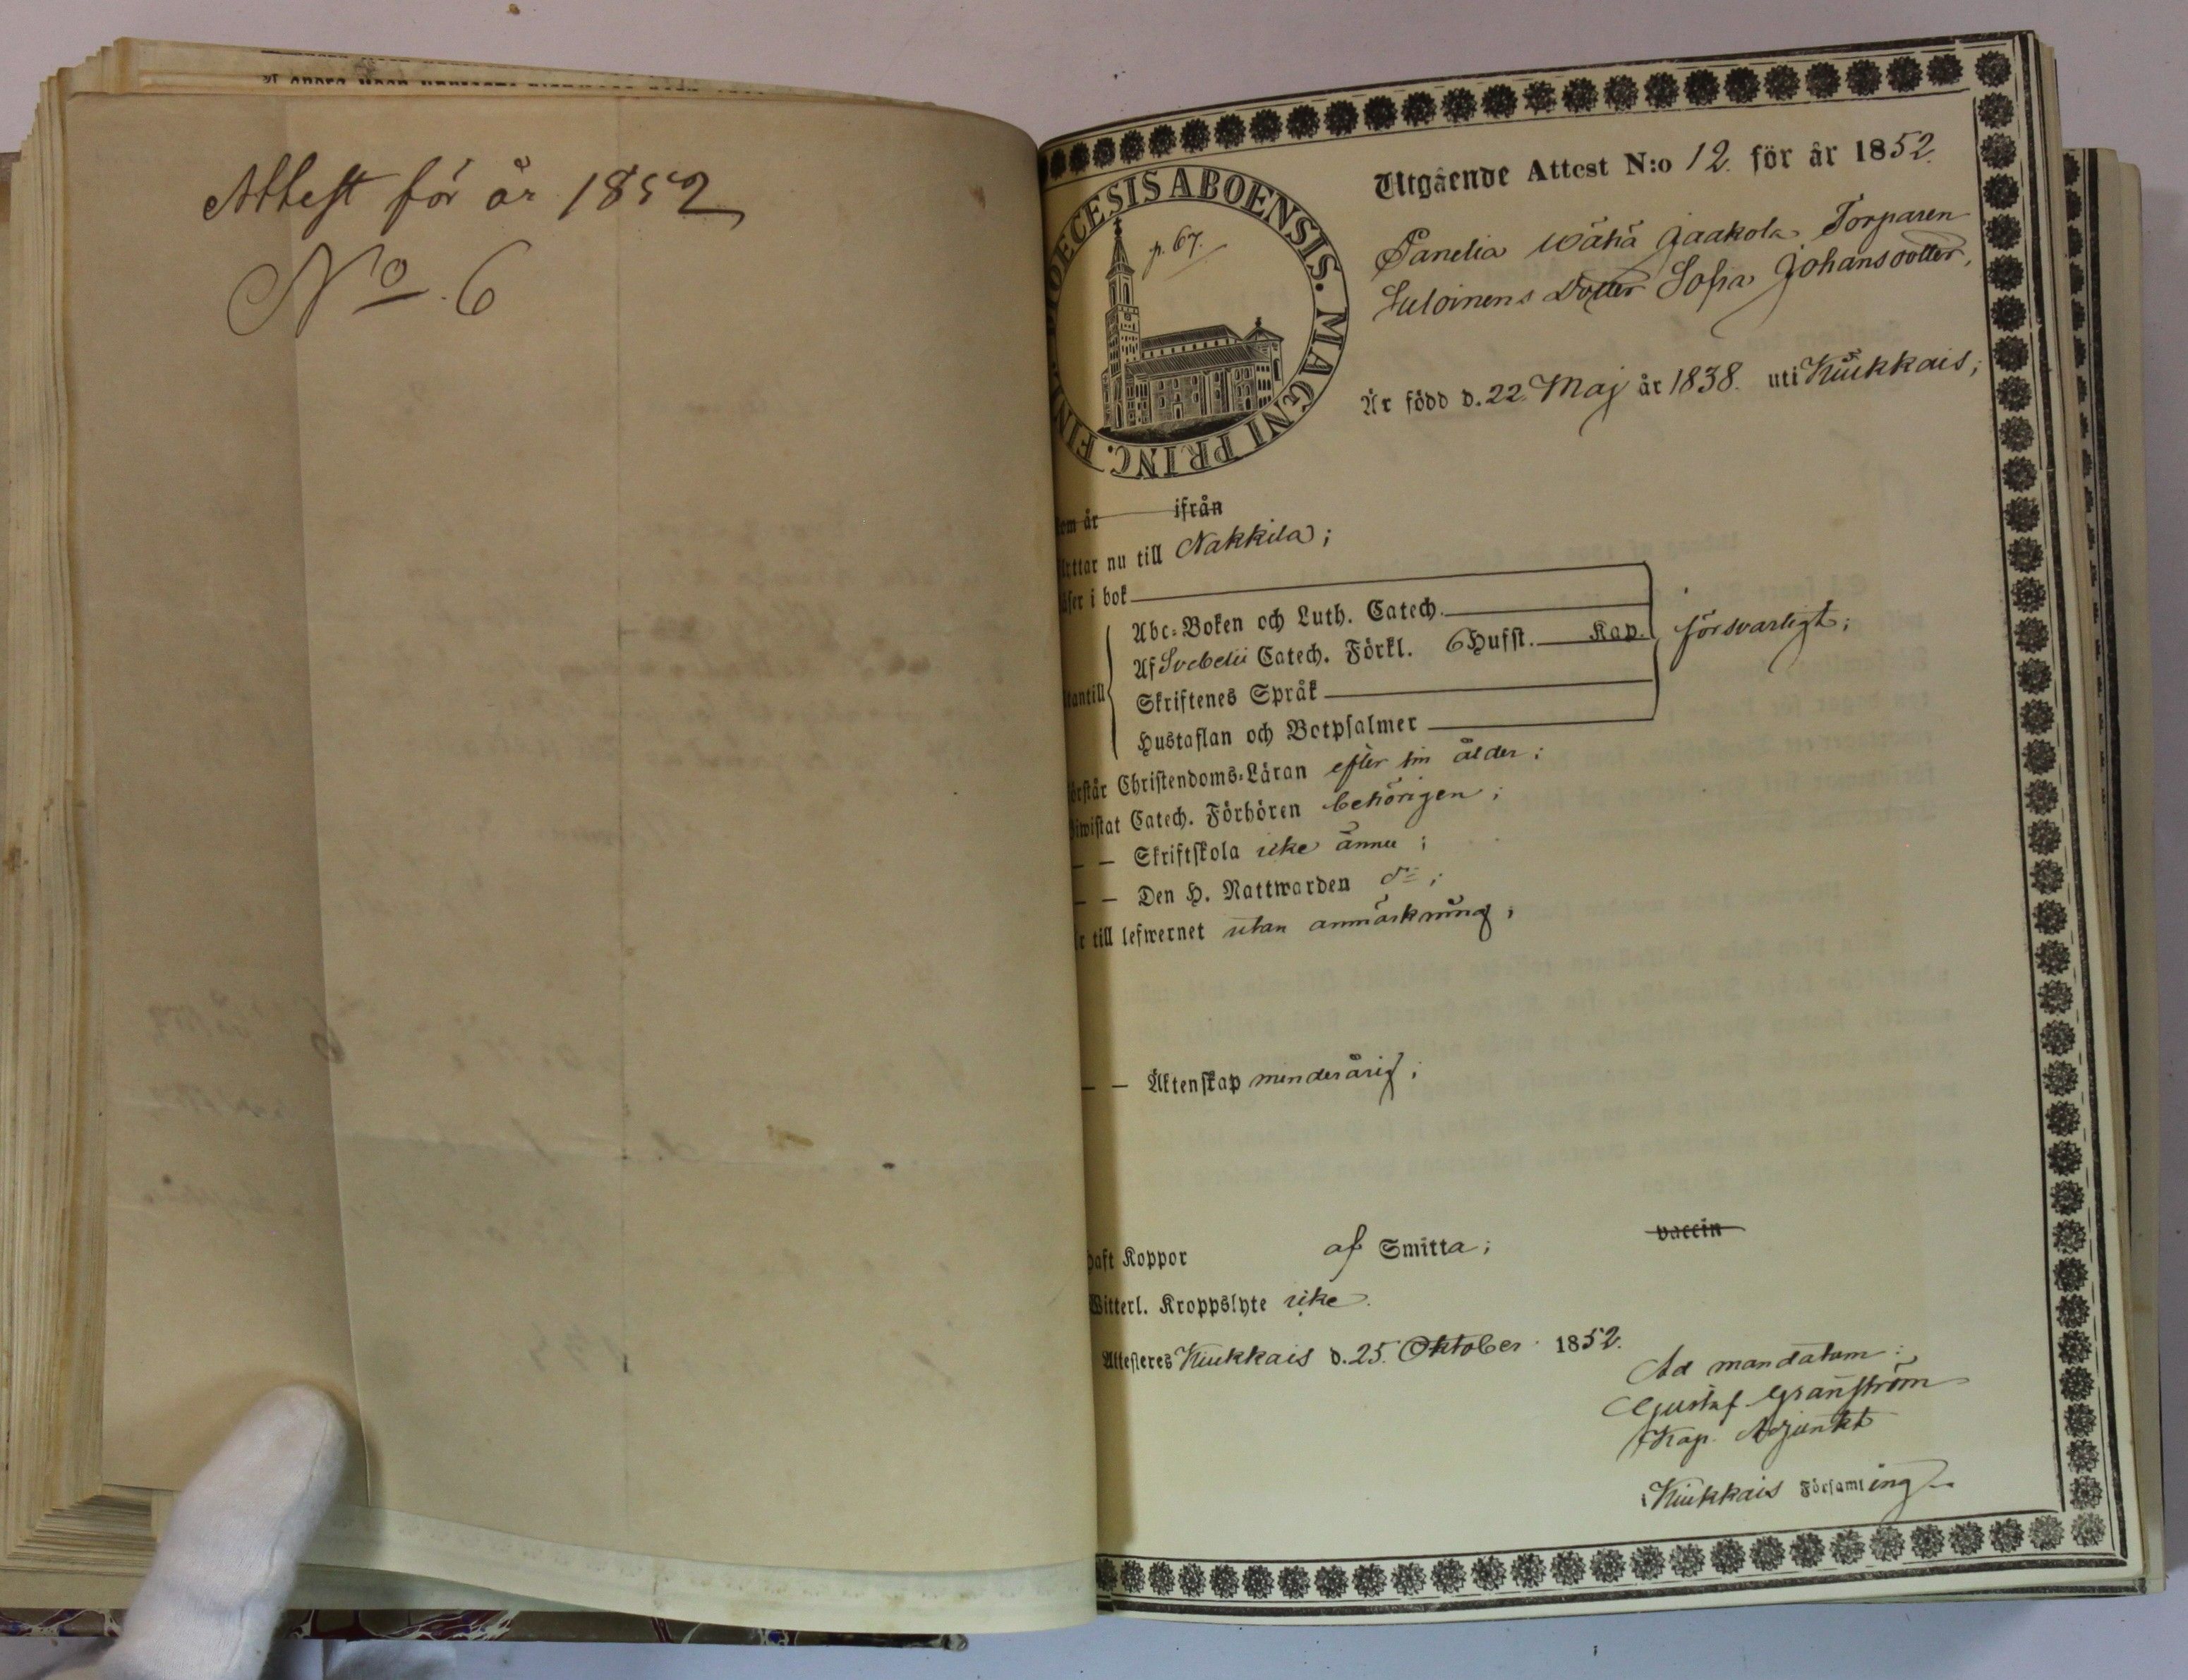 Attest för år 1852
No. 6
DIOECESIS ABOENSIS. MAGNI PRINC. FINL.
p. 67.
Utgående Attest N:o 12. för år 1852.
Panelia Wähä Jaakola Torparen
Suloinens Dotter Sofia Johansdotter,
Är född d. 22. Maj år 1838. uti Kiukkais;
som är ifrån
flyttar nu till Nakkila;
läser i bok
Abc-Boken och Luth. Catech.
Af Svebelii Catech. Förkl. 6 Hufst. Kap. försvarligt;
utantill
Skriftenes Språk
Hustaflan och Botpsalmer
förstår Christendoms-Läran efter sin ålder;
biwistat Catech. Förhören behörigen;
— — Skriftskola icke ännu;
— — Den H. Nattwarden do;
är till lefwernet utan anmärkning;
— — Äktenskap minderårig;
haft Koppor af Smitta; vaccin
Witterl. Kroppslyte icke.
Attesteres Kiukkais d. 25. Oktober 1852.
Ad mandatum:
Gustaf Granström
Kap. Adjunkt
i Kiukkais Församling